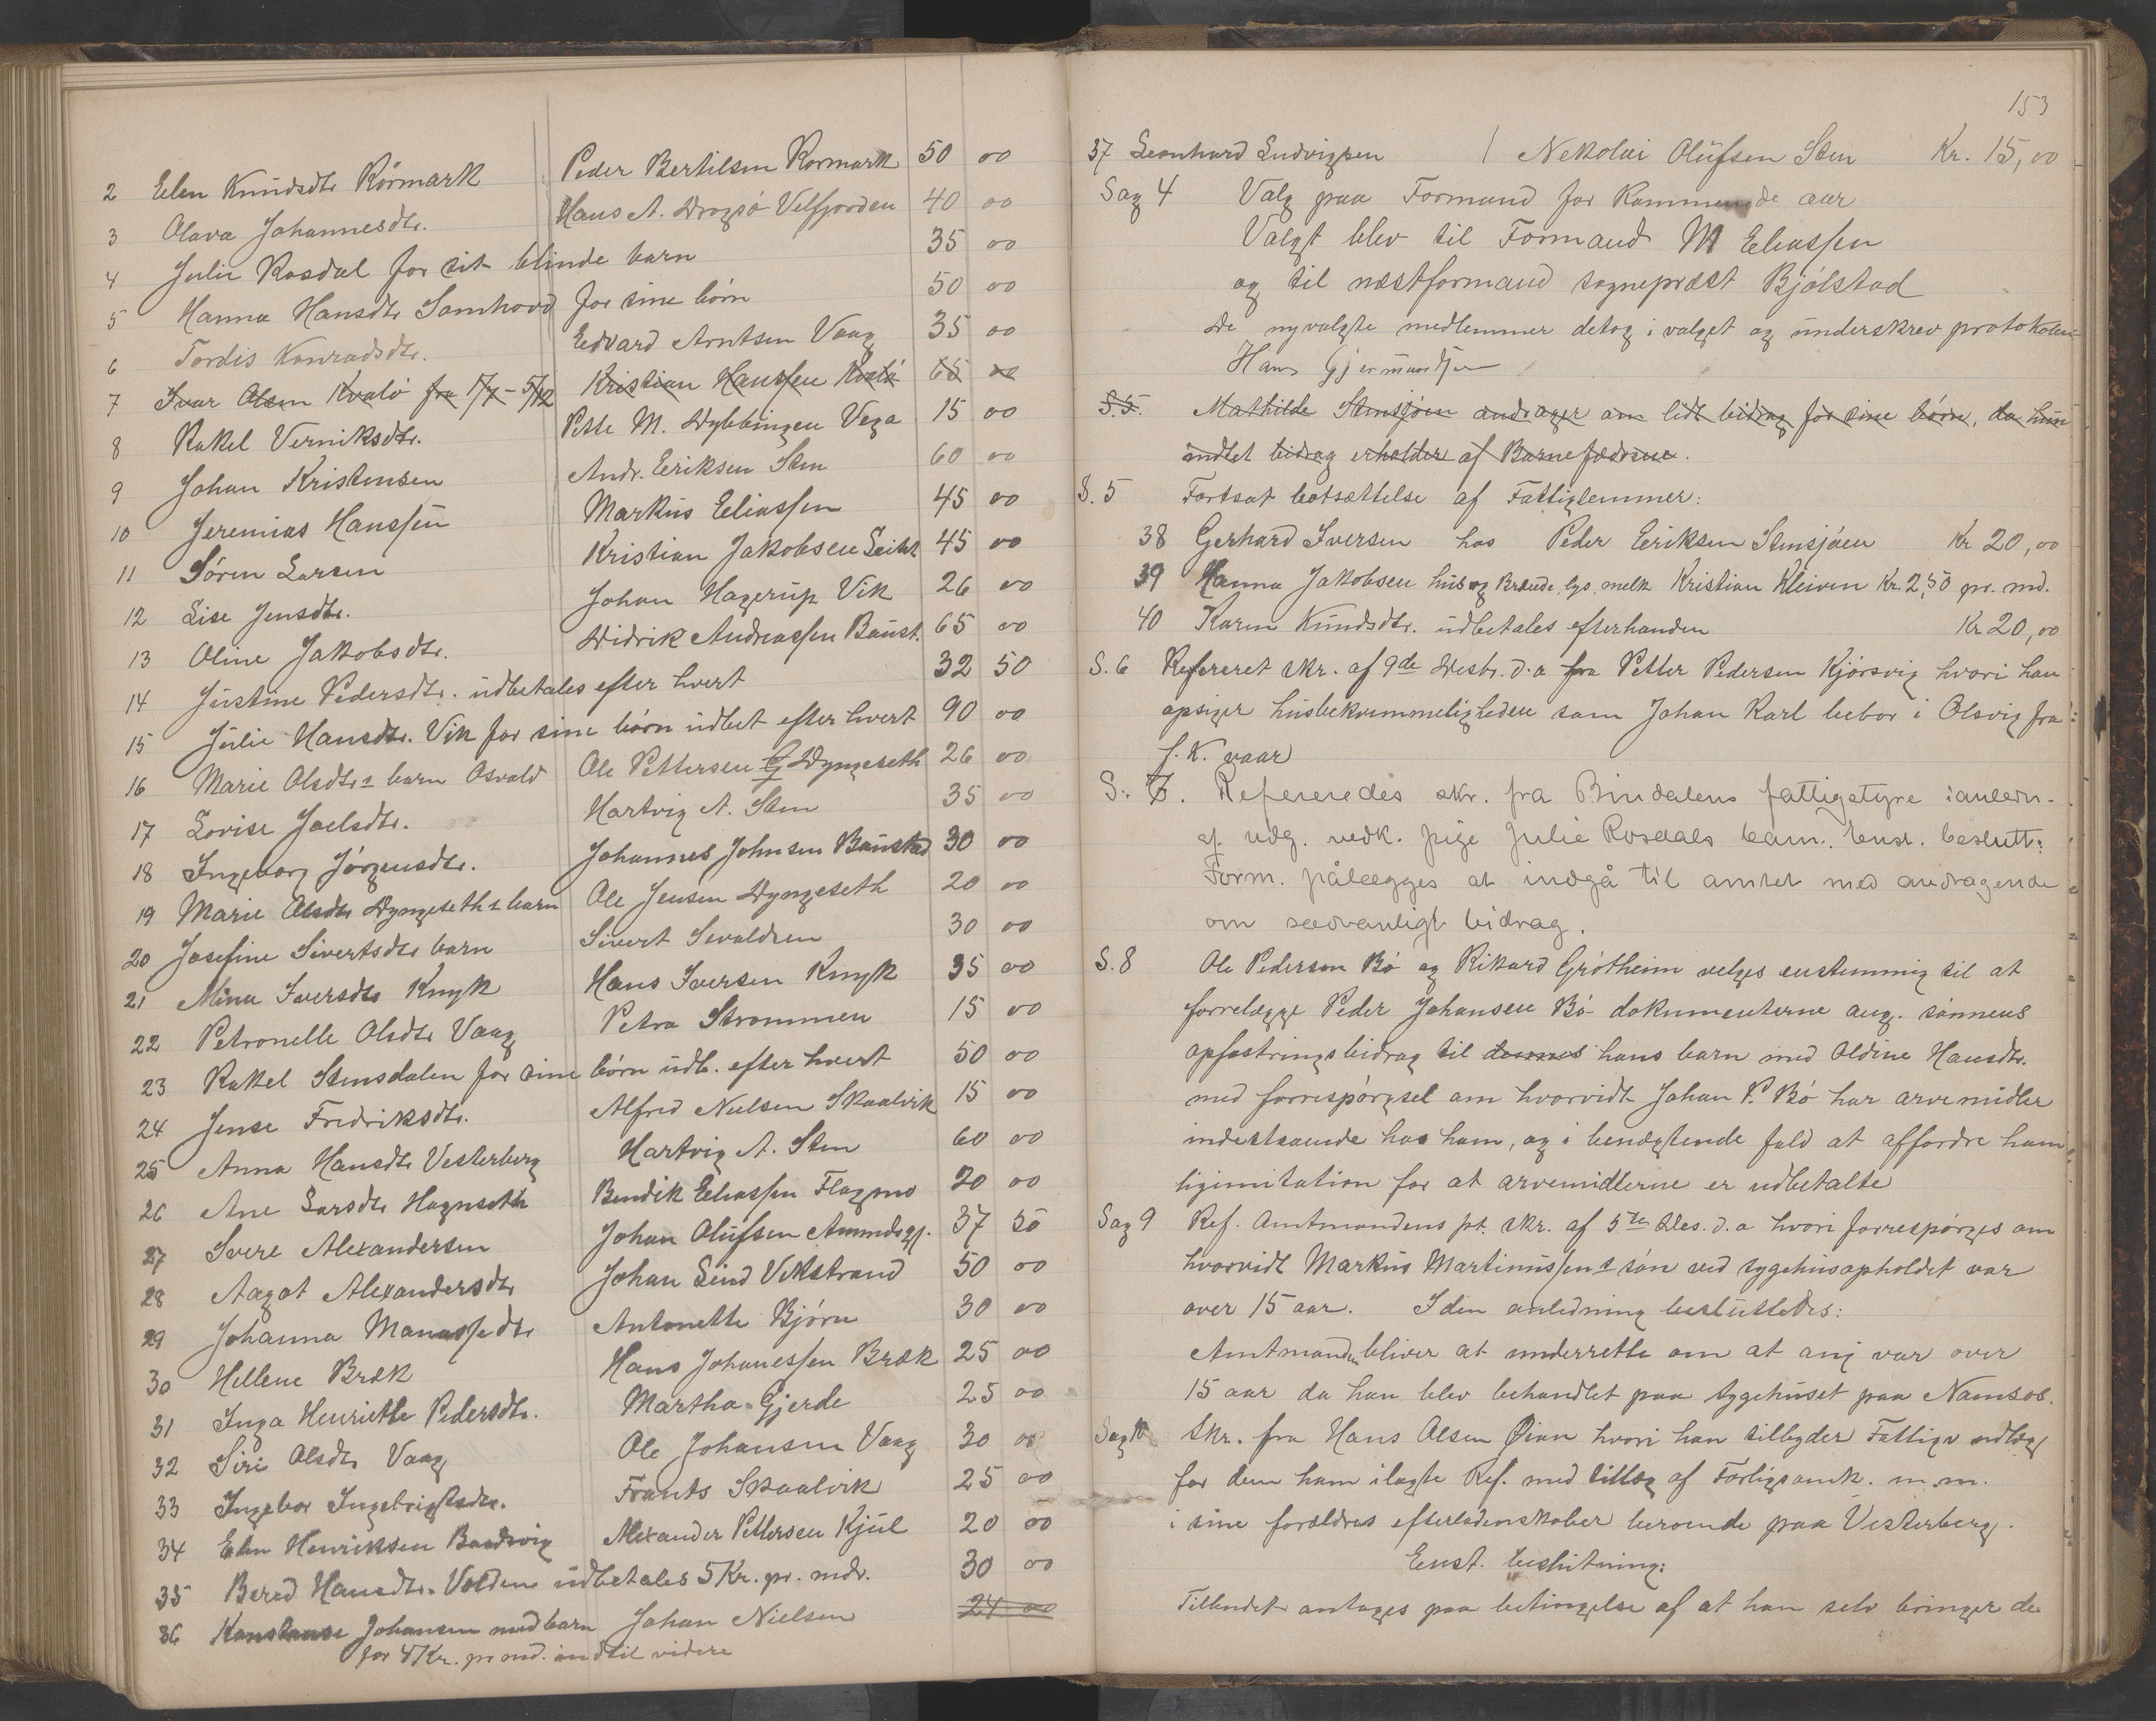 2 Elen Knudsdtr Kørmark Peder Bertilsen Kormark 50 00
3 Olava Johannesdtr. Hans A. Dragsø Velfjorden 40 00
4 Julie Rosdal for sit blinde barn 35 00
5 Hanna Hansdtr Somhovd for sine børn 50 00
6 Tordis Konradsdtr. Edvard Arntsen Vaag 35 00
7 Ivar Olsen Kvalø fra 1/7 - 5/12 Kristian Hanssen Kvalø 65 00
8 Rakel Verniksdtr. Pette M. Dybbingen Vega 15 00
9 Johan Kristensen Andr. Eriksen Sten 60 00
10 Jeremias Hanssen Markus Eliassen 45 00
11 Søren Larsen Kristian Jakobsen 45 00
12 Lise Jensdtr. Johan Hagerup Vik 26 00
13 Oline Jakobsdtr. Didrik Andreassen Baust. 65 00
14 Justine Pedersdtr. udbetales efter hvert 32 50
15 Julie Hansdtr. Vik for sine børn udbet efter hvert 90 00
16 Marie Olsdtrs barn Osvald Ole Pettersen G Dyngeseth 26 00
17 Lovise Joelsdtr. Hartvig A. Sten 35 00
18 Ingeborg Jørgensdtr. Johannes Johnsen Baustad 30 00
19 Marie Olsdtr Dyngeseths barn Ole Jensen Dyngeseth 20 00
20 Josefine Sivertsdtr barn Sivert Sivaldsen 30 00
21 Mina Iversdtr Knyk Hans Iversen Knyk 35 00
22 Petronelle Olsdtr Vaag Petra Strommen 15 00
23 Rakel Stensdalen for sine børn udb. efter hvert 50 00
24 Jense Fredriksdtr. Alfred Nielsen Skaalvik 15 00
25 Anna Hansdtr Vesterberg Hartvig A. Sten 60 00
26 Ane Larsdtr Hognseth Bendik Eliassen Flagmo 20 00
27 Sverre Alexandersen Johan Olufsen 37 50
28 Aagot Alexandersdtr Johan Lind Vikstrand 50 00
29 Johanna Manassedtr Antonette Bjørn 30 00
30 Hellene Bræk Hans Johanessen Bræk 25 00
31 Inga Henriette Pedersdtr. Martha Gjerde 25 00
32 Siri Olsdtr Vaag Ole Johansen Vaag 30 00
33 Ingebor Ingebrigtsdtr. Frants Skaalvik 25 00
34 Elen Henriksen Alexander Pettersen Kjul 20 00
35 Bered Hansdtr. Volden udbetales 5 Kr. pr. mdr. 30 00
36 Konstanse Johansen med barn Johan Nielsen 24 00
for 4 Kr. pr md. indtil videre
153
37 Leonhard Ludvigsen / Nekolai Olufsen Sten Kr. 15,00
Sag 4 Valg paa Formand for kommende aar
Valgt blev til Formand M Eliassen
og til næstformand sogneprest Bjølstad
De nyvalgte medlemmer detog i valget og underskrev protokolen
Hans Gjermundsen
S.5. Mathilde Stensjøen andrager om lidt bidrag for sine børn, da hun
indtet bidrag erholder af Barnefædrene.
S. 5 Fortsat bortsættelse af Fattiglemmer:
38 Gerhard Iversen hos Peder Eriksen Stensjøen Kr 20,00
39 Hanna Jakobsen hus og Brænde, lys, melk Kristian Kleiven Kr. 2,50 pr. md.
40 Karen Knudsdtr. udbetales efterhanden Kr 20,00
S. 6 Refereret skr. af 9de Desbr. d.a fra Petter Pedersen Kjørsvig hvori han
opsiger husbekvemmeligheden som Johan Karl bebor i Olsvig fra
f. k. vaar
S. 7. Refereredes skr. fra Bindalens fattigstyre i anledn.
af udg. vedk. pige Julie Rosdals barn. Enst. beslutt:
Form. pålægges at indgå til amtet med andragende
om sædvanligt bidrag.
S. 8 Ole Pedersen Bø og Rikard Grøtheim velges enstemmig til at
forrelægge Peder Johansen Bø dokumenterne ang. sønnens
opfostringsbidrag til dennes hans barn med Oldine Hansdtr.
med forrespørgsel om hvorvidt Johan P. Bø har arvemidler
indestaaende hos ham, og i benægtende fald at affordre ham
ligimitation for at arvemidlerne er udbetalte
Sag 9 Ref. Amtmandens pt. skr. af 5te Des. d.a hvori forrespørges om
hvorvidt Markus Martinussens søn ved sygehusopholdet var
over 15 aar. I den anledning besluttedes:
Amtmanden bliver at underrette om at ang var over
15 aar da han blev behandlet paa sygehuset paa Namsos.
Sag 10 Skr. fra Hans Olsen Øian hvori han tilbyder Fattigv udlæg
for dem ham ilagte Ref. med tillæg af Forligsomk. m.m.
i sine forældres efterladenskaber beroende paa Vesterberg.
Enst. beslutning:
Tilbudet antages paa betingelse af at han selv bringer de